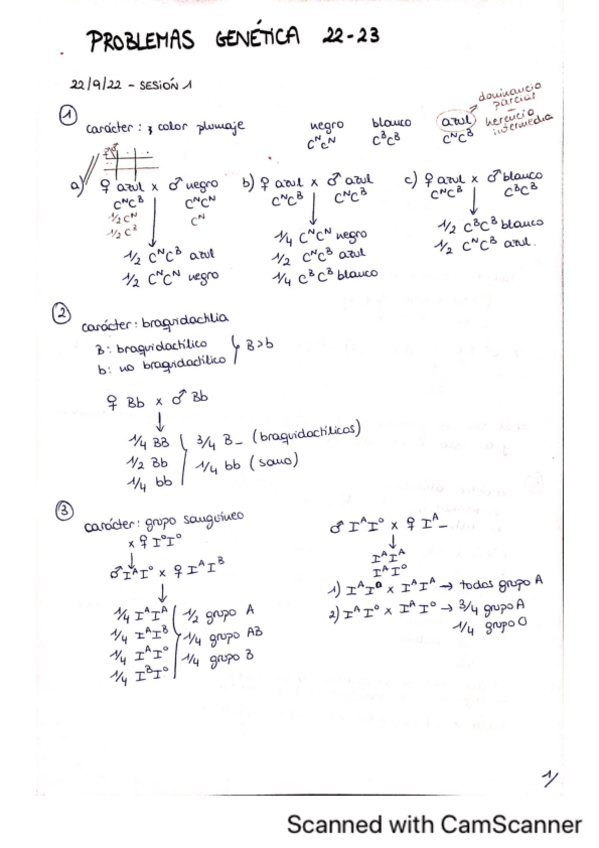 PROBLEMAS GENÉTICA 22-23
22/9/22 - SESIÓN 1
① carácter: color plumaje
negro blanco azul
CᴺCᴺ CᴮCᴮ CᴺCᴮ
dominancia parcial
herencia intermedia
a) ♀ azul x ♂ negro
CᴺCᴮ CᴺCᴺ
1/2 Cᴺ Cᴺ
1/2 Cᴮ
↓
1/2 CᴺCᴮ azul
1/2 CᴺCᴺ negro
b) ♀ azul x ♂ azul
CᴺCᴮ CᴺCᴮ
↓
1/4 CᴺCᴺ negro
1/2 CᴺCᴮ azul
1/4 CᴮCᴮ blanco
c) ♀ azul x ♂ blanco
CᴺCᴮ CᴮCᴮ
↓
1/2 CᴮCᴮ blanco
1/2 CᴺCᴮ azul.
② carácter: braquidactilia
B: braquidactílico
b: no braquidactílico
B>b
♀ Bb x ♂ Bb
↓
1/4 BB
1/2 Bb
1/4 bb
3/4 B_ (braquidactílicos)
1/4 bb (sano)
③ carácter: grupo sanguíneo
x ♀ I⁰I⁰
↓
♂ IᴬI⁰ x ♀ IᴬIᴮ
↓
1/4 IᴬIᴬ
1/4 IᴬIᴮ
1/4 IᴬI⁰
1/4 IᴮI⁰
1/2 grupo A
1/4 grupo AB
1/4 grupo B
♂ IᴬI⁰ x ♀ Iᴬ_
↓
IᴬIᴬ
IᴬI⁰
1) IᴬI⁰ x IᴬIᴬ → todos grupo A
2) IᴬI⁰ x IᴬI⁰ → 3/4 grupo A
1/4 grupo O
1/
Scanned with CamScanner